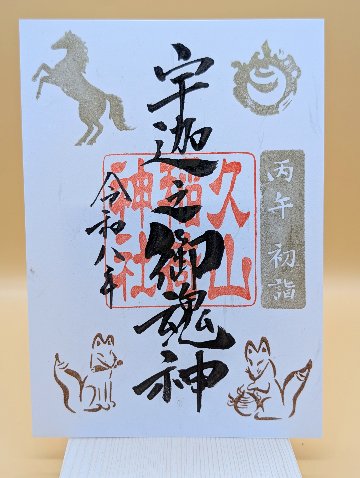 丙午 初詣
宇迦之御魂神
令和八年
久山
稲荷
神社